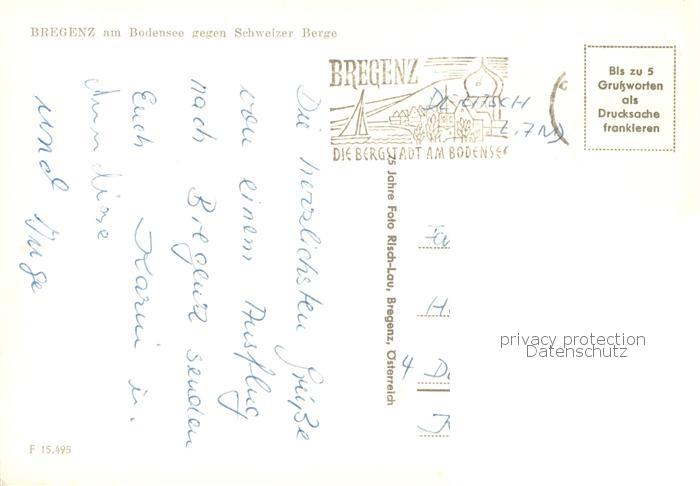 BREGENZ am Bodensee gegen Schweizer Berge
BREGENZ
DIE BERGSTADT AM BODENSEE
Bis zu 5
Grußworten
als
Drucksache
frankieren
Die herzlichsten Grüße
von einem Ausflug
nach Bregenz senden
Euch Karin u.
und Inge
75 Jahre Foto Risch-Lau, Bregenz, Österreich
4 D
privacy protection
Datenschutz
F 15.495